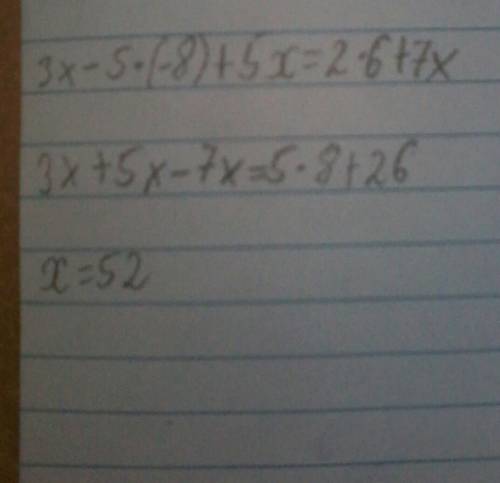 3x-5·(-8)+5x=2·6+7x
3x+5x-7x=5·8+26
x=52